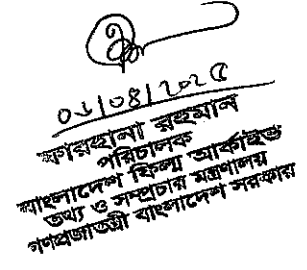 ০১/০৪/২০২৫
ফারহানা রহমান
পরিচালক
বাংলাদেশ ফিল্ম আর্কাইভ
তথ্য ও সম্প্রচার মন্ত্রণালয়
গণপ্রজাতন্ত্রী বাংলাদেশ সরকার